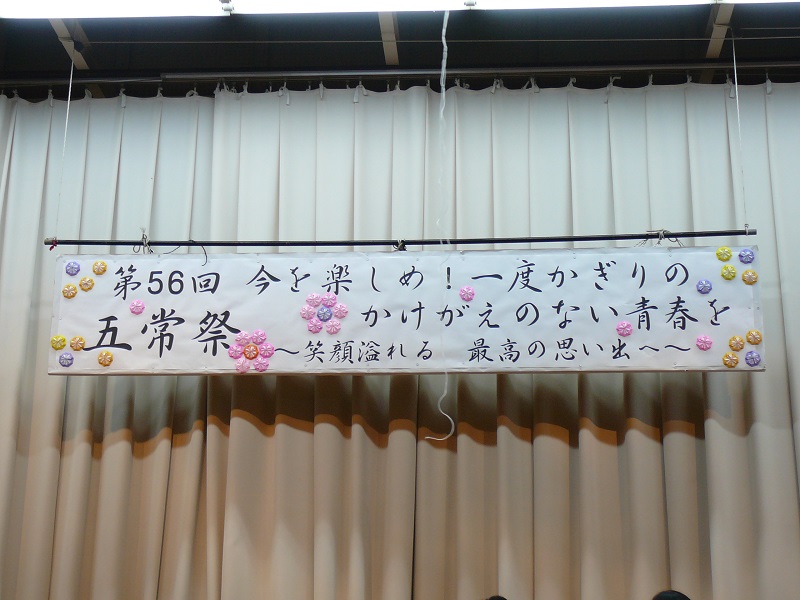 第56回 今を楽しめ!一度かぎりの
五常祭 かけがえのない青春を
～笑顔溢れる 最高の思い出へ～